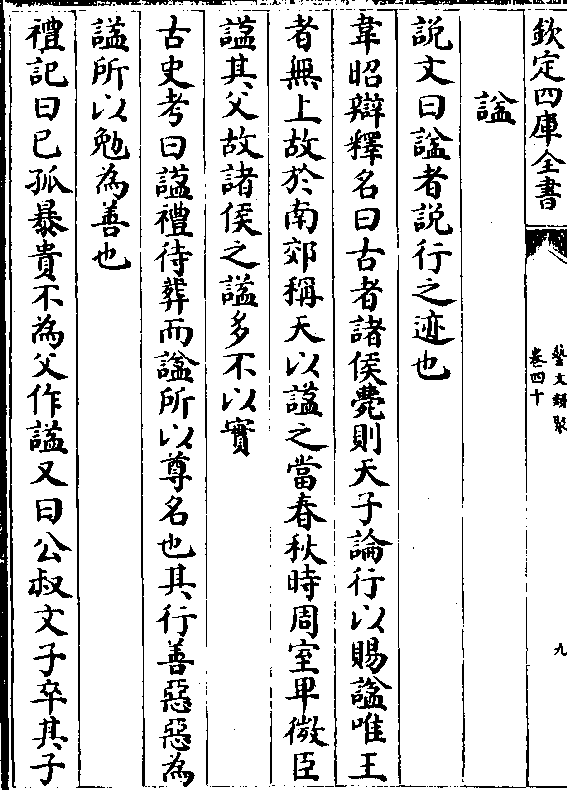 欽定四庫全書
藝文類聚
卷四十
九
諡
說文曰諡者說行之迹也
韋昭辯釋名曰古者諸侯薨則天子論行以賜諡唯王
者無上故於南郊稱天以諡之當春秋時周室卑微臣
諡其父故諸侯之諡多不以實
古史考曰諡禮待葬而諡所以尊名也其行善惡惡為
諡所以勉為善也
禮記曰已孤暴貴不為父作諡又曰公叔文子卒其子